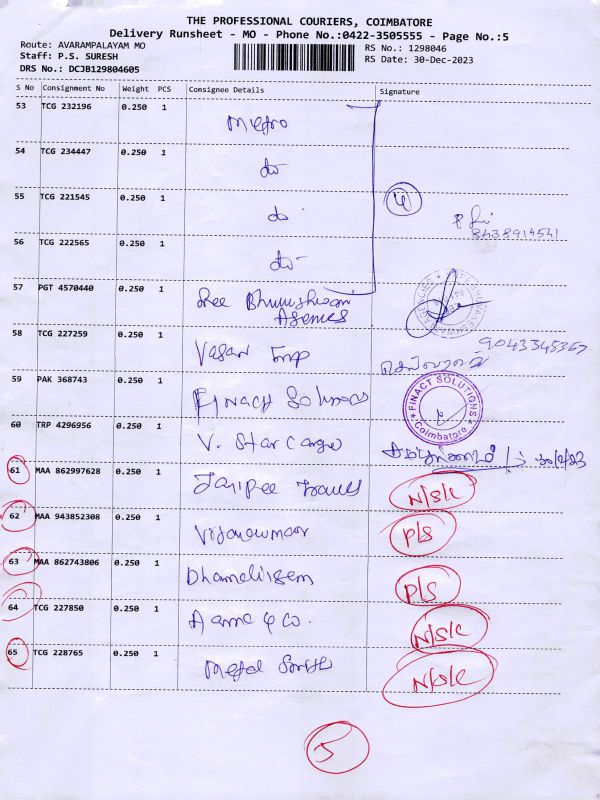 THE PROFESSIONAL COURIERS, COIMBATORE
Delivery Runsheet - MO - Phone No.:0422-3505555 - Page No.:5
Route: AVARAMPALAYAM MO
RS No.: 1298046
Staff: P.S. SURESH
RS Date: 30-Dec-2023
DRS No.: DCJB129804605
S No Consignment No Weight PCS Consignee Details Signature
53 TCG 232196 0.250 1 Metro
54 TCG 234447 0.250 1 do
55 TCG 221545 0.250 1 do 4
8438914541
56 TCG 222565 0.250 1 do
57 PGT 4570440 0.250 1 Sree Bhuvaneshwari
Agencies
58 TCG 227259 0.250 1 Vasan Emp
9043345367
59 PAK 368743 0.250 1 Finact Solutions FINACT SOLUTIONS Coimbatore
60 TRP 4296956 0.250 1 V. Star Cargo 30/12/23
61 MAA 862997628 0.250 1 N/S/K
62 MAA 943852308 0.250 1 Vijayakumar P/S
63 MAA 862743806 0.250 1 P/S
64 TCG 227850 0.250 1 & Co. N/S/K
65 TCG 228765 0.250 1 N/S/K
5